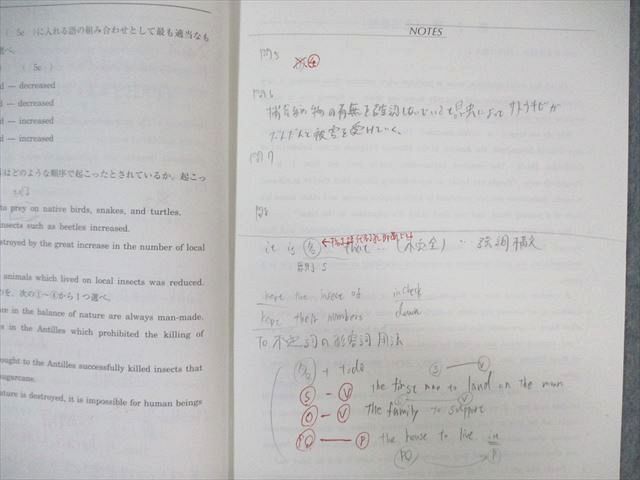 ( 5c )に入れる語の組み合わせとして最も適当なも
選べ
( 5c )
d — decreased
d — decreased
d — increased
d — increased
はどのような順序で起こったとされているか。起こっ
to prey on native birds, snakes, and turtles.
insects such as beetles increased.
stroyed by the great increase in the number of local
animals which lived on local insects was reduced.
のを、次の①~④から1つ選べ。
ce in the balance of nature are always man-made.
s in the Antilles which prohibited the killing of
ought to the Antilles successfully killed insects that
sugarcane.
ature is destroyed, it is impossible for human beings
NOTES
問5
④
問6
の有無を確認しないでいても昆虫によってサトウキビが
だんだんと被害を受けていく。
問7
問8
it is 名 that … (不完全) … 強調構文
kept the insect in check
kept their numbers down
To不定詞の形容詞用法
名 + to do
S — V
S — V the first man to land on the moon
O — V the family to support
PO — P the house to live in
PO P